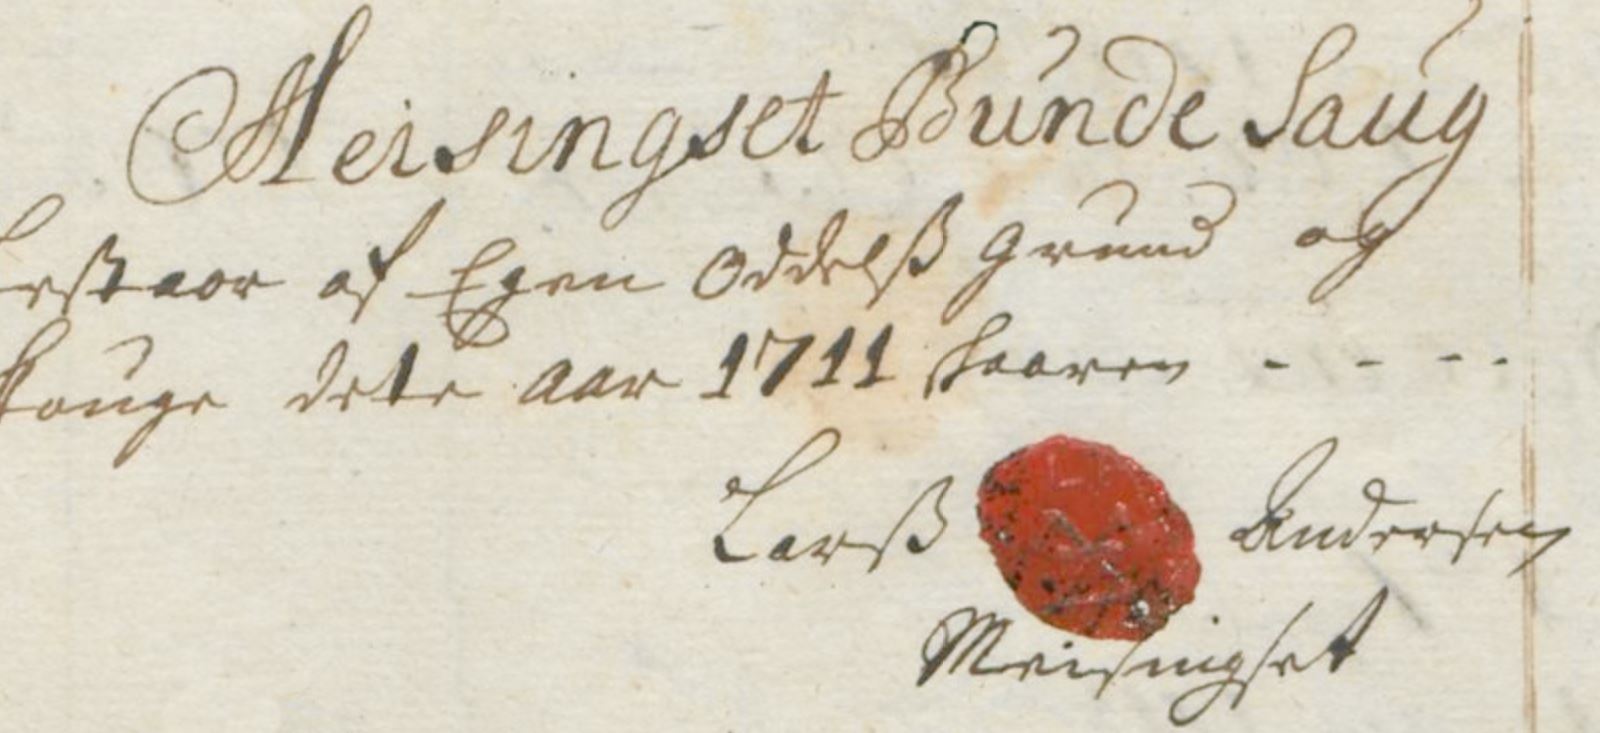 Meisingset Bunde Saug
af Egen Oddelß Grund og
dete Aar 1711 skaaren - - - -
Larß Andersen
Meisingset